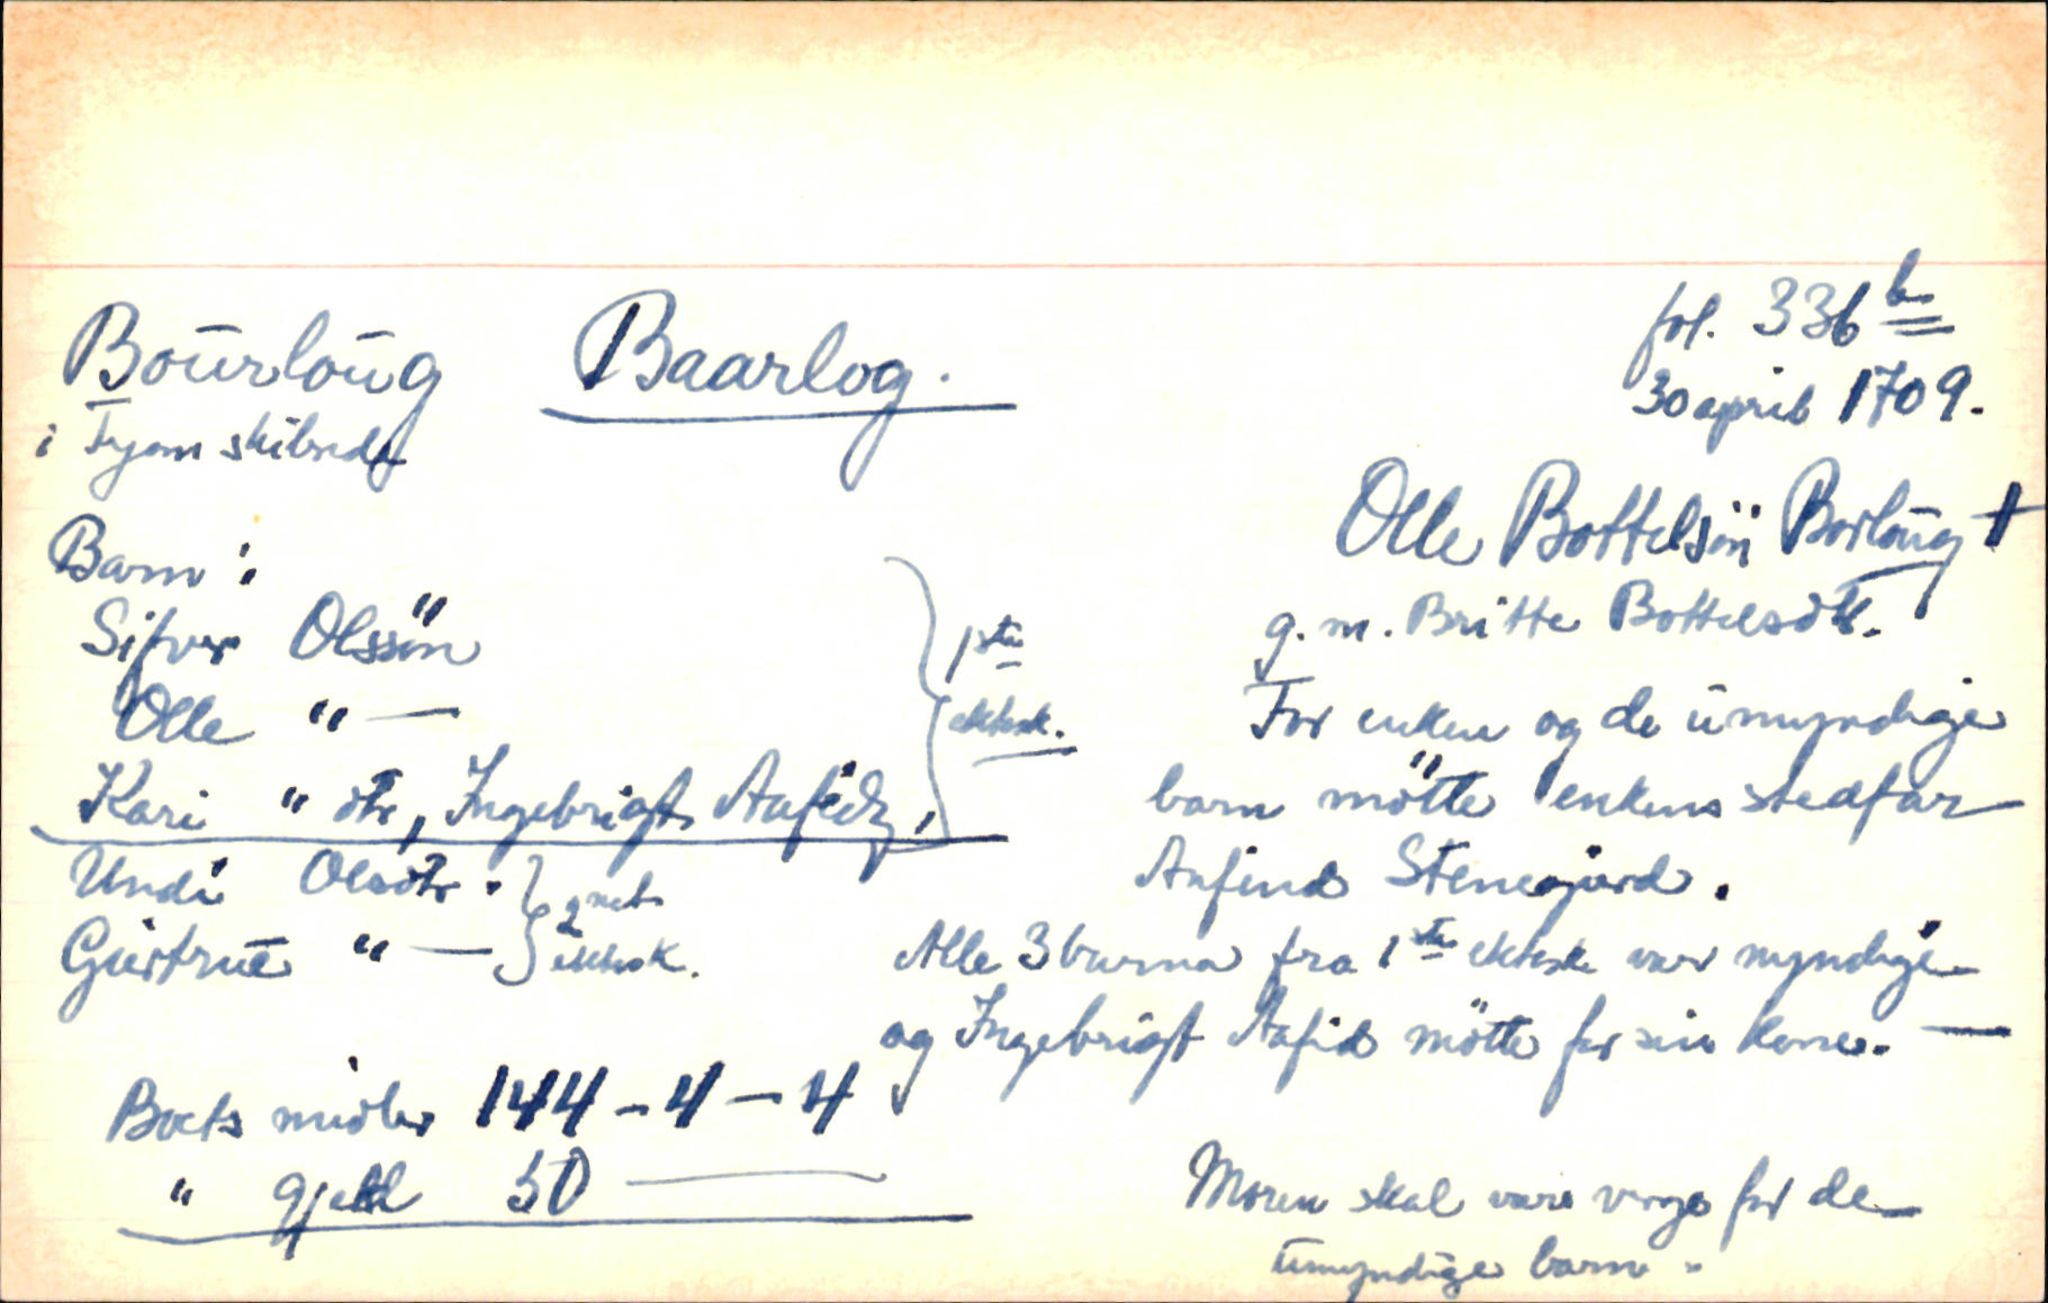 Boūrloūg Baarlog.
i Tyom skibrede
fol. 336 b
30 april 1709.
Olle Bottelsön Borloūg †
g. m. Britte Bottelsdtr.
Barn:
Sifver Olssön
Olle " —
Kari " dtr, Ingebrigt Aafedz,
1ste
ektesk.
Undi Olsdtr.
Gūrtrūe " —
2net
ektesk.
For enken og de ūmyndige
barn mötte enkens stedfar
Anfind Stenegjard.
Alle 3 barna fra 1ste ektesk var myndige
og Ingebrigt Aafid mötte for sin kone. —
Boets midler 144 - 4 - 4
" gjeld 50 —
Moren skal være verge for de
ūmyndige barn.